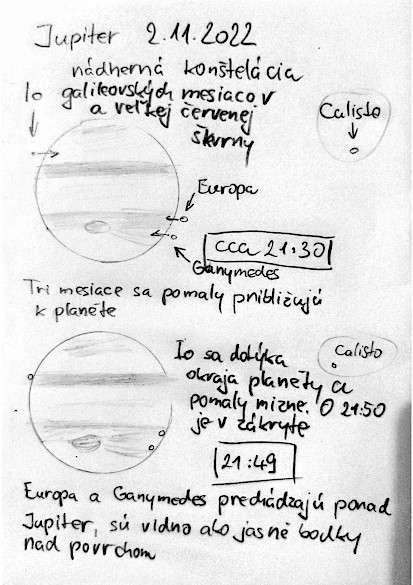 Jupiter 2.11.2022
nádherná konštelácia
Io galileovských mesiacov
a veľkej červenej
škvrny
Calisto
Europa
cca 21:30
Ganymedes
Tri mesiace sa pomaly približujú
k planéte
Io sa dotýka
okraja planéty a
pomaly mizne. O 21:50
je v zákryte
Calisto
21:49
Europa a Ganymedes prechádzajú ponad
Jupiter, sú vidno ako jasné bodky
nad povrchom